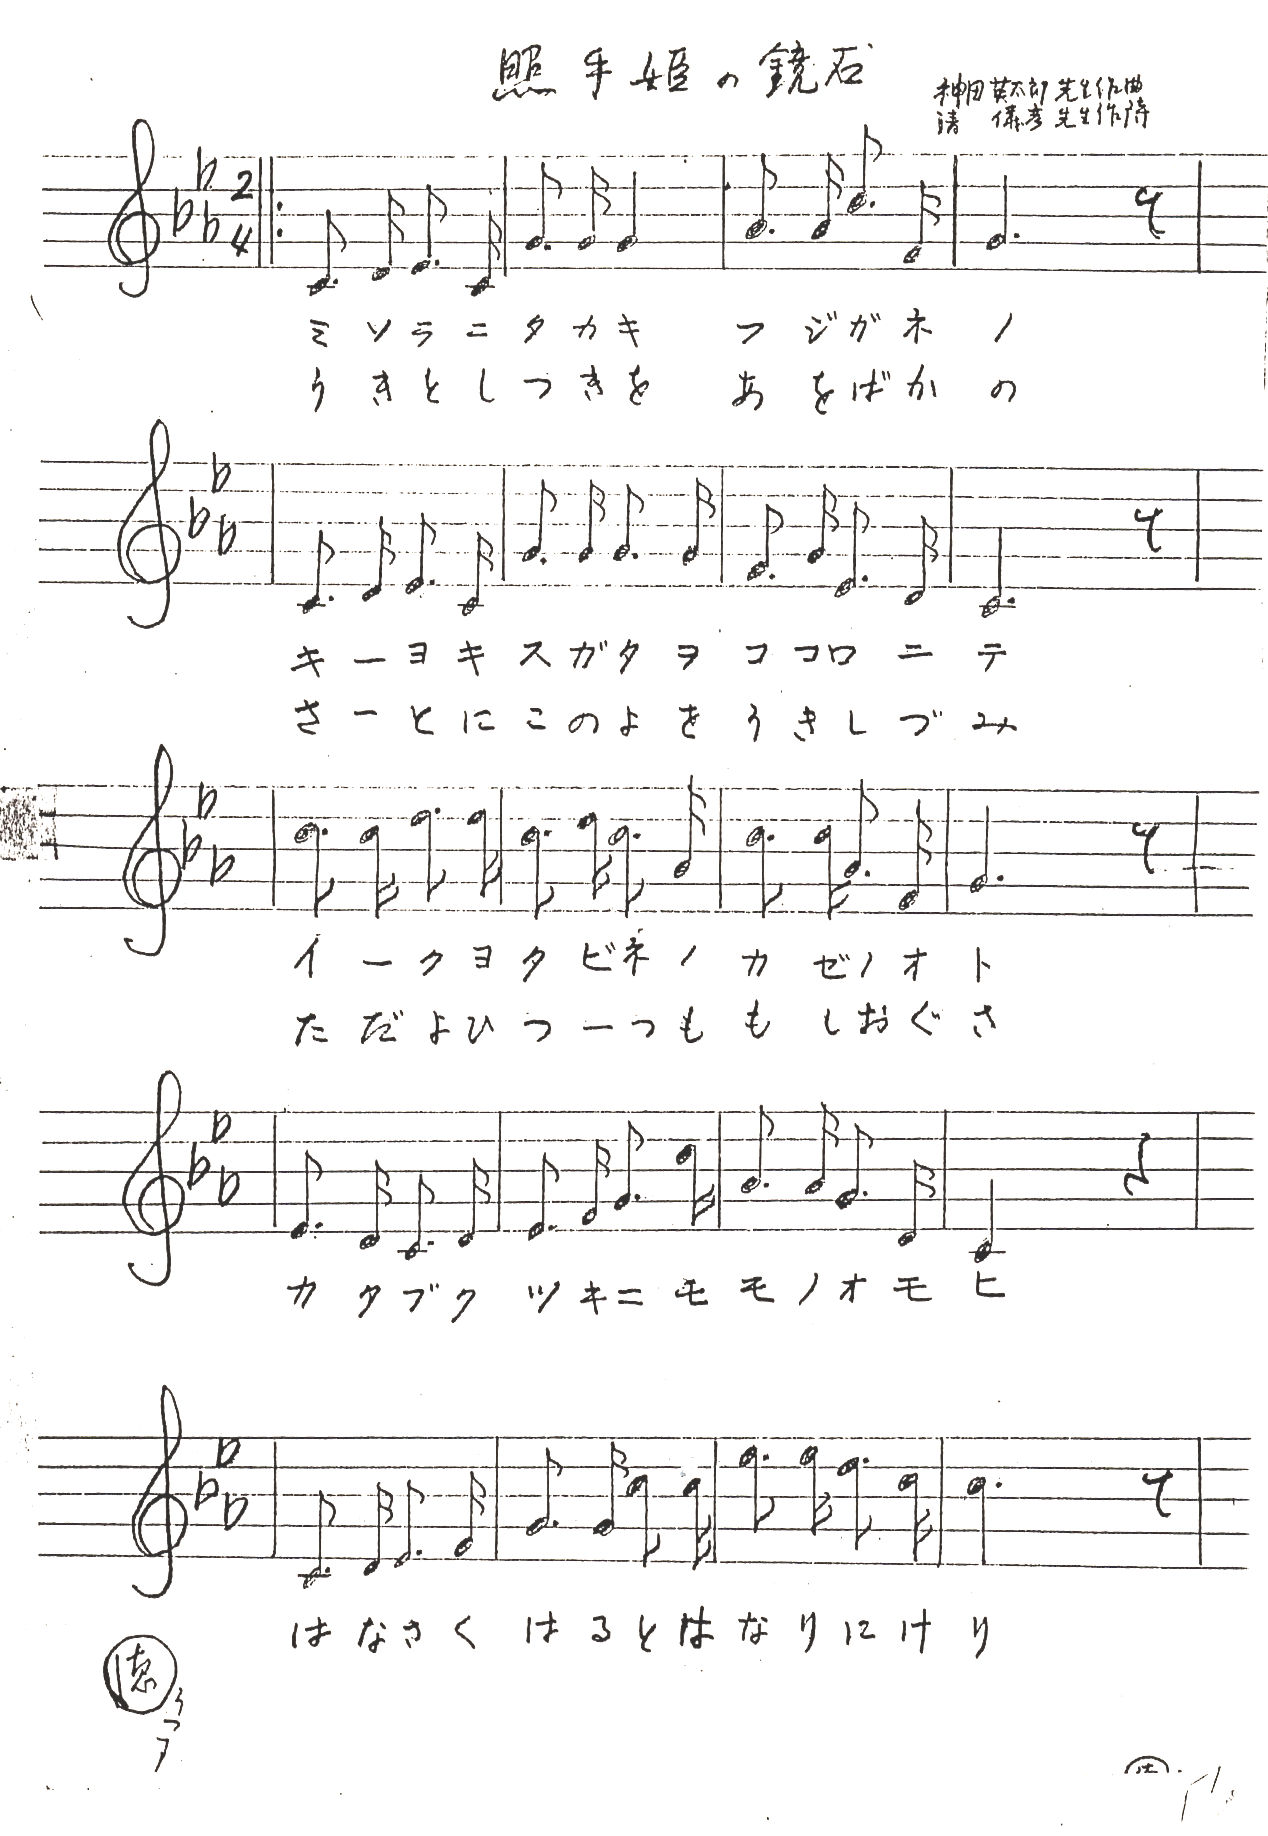 照手姫の鏡石
神田英太郎先生作曲
清 儀彦先生作詩
2
4
ミソラニタカキ フジガネノ
うきとしつきを あをばかの
キーヨキスガタヲココロニテ
さーとにこのよをうきしづみ
イークヨタビネノカゼノオト
ただよひつーつももしおぐさ
カタブクツキニモモノオモヒ
はなさくはるとはなりにけり